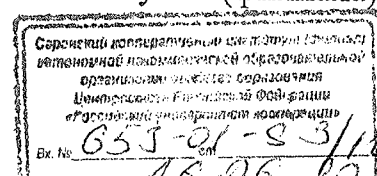 Саранский кооперативный институт (филиал)
автономной некоммерческой образовательной
организации высшего образования
Центросоюза Российской Федерации
«Российский университет кооперации»
Вх. № 653-01-83/1 от